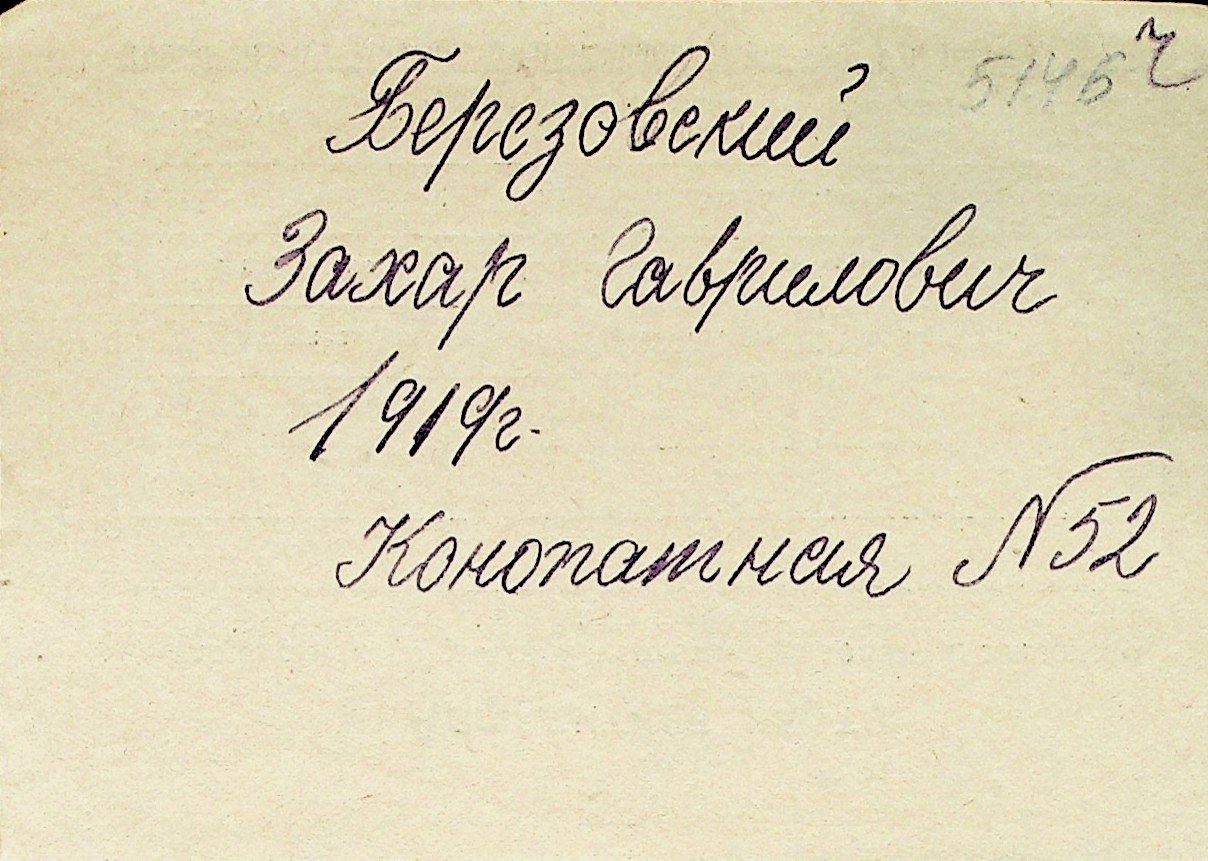 5146 ч
Березовский
Захар Гаврилович
1919г.
Конопатная N52